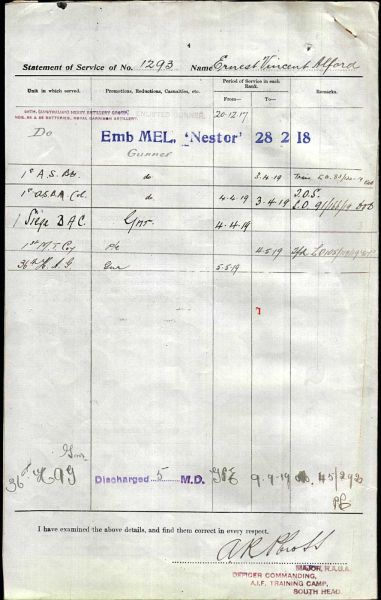 Statement of Service of No. 1293 Name Ernest Vincent Alford
Unit in which served. Promotions, Reductions, Casualties, etc. Period of Service in each Rank. Remarks.
From— To—
36TH. (AUSTRALIAN) HEAVY ARTILLERY GROUP,
NOS. 54 & 55 BATTERIES, ROYAL GARRISON ARTILLERY. GUNNER. 20-12-17
Do Emb MEL. 'Nestor' 28 2 18
Gunner
1st A.S. Bty do 3.4.19
do 4-4-19 3-4-19 T.O.S.
1 Siege BAC Gnr 4.4.19
1st M.T. Coy Pte 4.5.19
36th H.A.G Gnr 5.5.19
7
36th HAG Gnr Discharged 5 M.D. 9-9-19 45/292
I have examined the above details, and find them correct in every respect.
MAJOR, R.A.G.A.
OFFICER COMMANDING,
A.I.F. TRAINING CAMP,
SOUTH HEAD.